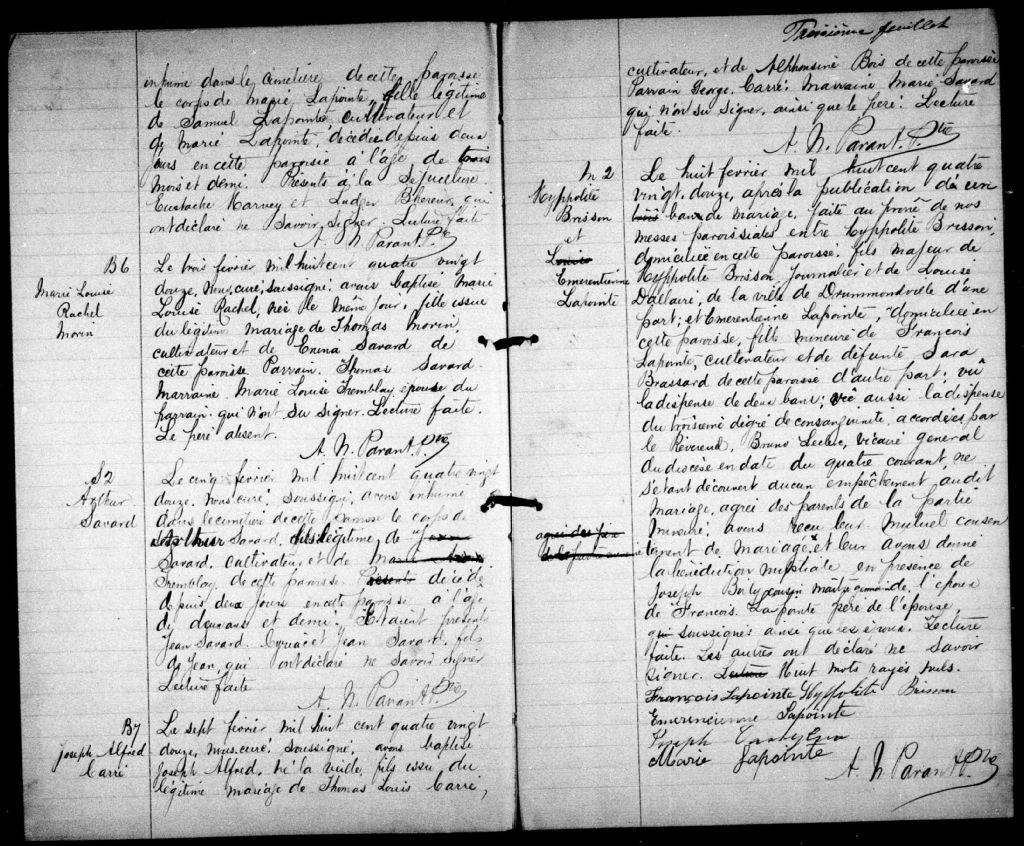 inhumé dans le cimetière de cette paroisse
le corps de Marie Lapointe, fille légitime
de Samuel Lapointe cultivateur et
de Marie Lapointe, décédée depuis deux
jours en cette paroisse à l'age de trois
mois et demi. Présents à la sépulture
Eustache Harvey et Ludger Bhereur, qui
ont déclaré ne savoir signer. Lecture faite
A. N. Parant Ptre
B6
Marie Louise
Rachel
Morin
Le trois février mil huit cent quatre vingt
douze, nous, curé, soussigné, avons baptisé Marie
Louise Rachel, née le même jour, fille issue
du légitime mariage de Thomas Morin,
cultivateur et de Enina Savard de
cette paroisse Parrain. Thomas Savard
Marraine Marie Louise Tremblay épouse du
parrain qui n'ont su signer. Lecture faite.
Le père absent.
A. N. Parant Ptre
S2
Arthur
Savard
Le cinq février mil huit cent quatre vingt
douze. Nous curé soussigné, avons inhumé
dans le cimetière de cette paroisse le corps de
Arthur Savard, fils légitime de Jean
Savard, cultivateur et de
Tremblay de cette paroisse Présents décédé
depuis deux jours en cette paroisse a l'age
de deux ans et demi. Etaient présents
Jean Savard. Cyriac et Jean Savard fils
de Jean, qui ont déclaré ne savoir signer
Lecture faite
A. N. Parant Ptre
B7
Joseph Alfred
Carré
Le sept février mil huit cent quatre vingt
douze, nous, curé soussigné, avons baptisé
Joseph Alfred, né la veille, fils issu du
légitime mariage de Thomas Louis Carré,
Troisième feuillet
cultivateur, et de Alphonsine Bois de cette paroisse
Parrain George Carré Marraine Marie Savard
qui n'ont su signer, ainsi que le père. Lecture
faite.
A. N. Parant Ptre
M 2
Hyppolite
Brisson
et
Louise
Emerentienne
Lapointe
Le huit février mil huit cent quatre
vingt douze, après la publication d'un
ban de mariage, faite au prône de nos
messes paroissiales entre Hyppolite Brisson,
domicilié en cette paroisse, fils majeur de
Hyppolite Brisson journalier et de Louise
Dallaire, de la ville de Drummondville d'une
part; et Emerentienne Lapointe, domiciliée en
cette paroisse, fille mineure de François
Lapointe, cultivateur et de défunte Sara
Brassard de cette paroisse d'autre part; vu
la dispense de deux bans; vu aussi la dispense
du troisième dégré de consanguinité, accordées par
le Révérend, Bruno Leclerc, vicaire général
du diocèse en date du quatre courant, ne
s'étant découvert aucun empêchement au dit
mariage, agréé des parents de la partie
mineure, avons reçu leur mutuel consen
tement de mariage, et leur avons donné
la bénédiction nuptiale en présence de
Joseph Boily cousin l'époux
de François Lapointe père de l'épouse,
qui soussignés ainsi que les époux. Lecture
faite. Les autres ont déclaré ne savoir
signer. Lecture Huit mots rayés nuls.
agréé des pa
de la partie
François Lapointe Hyppolite Brisson
Emerencienne Lapointe
Joseph
Marie Lapointe
A. N. Parant Ptre